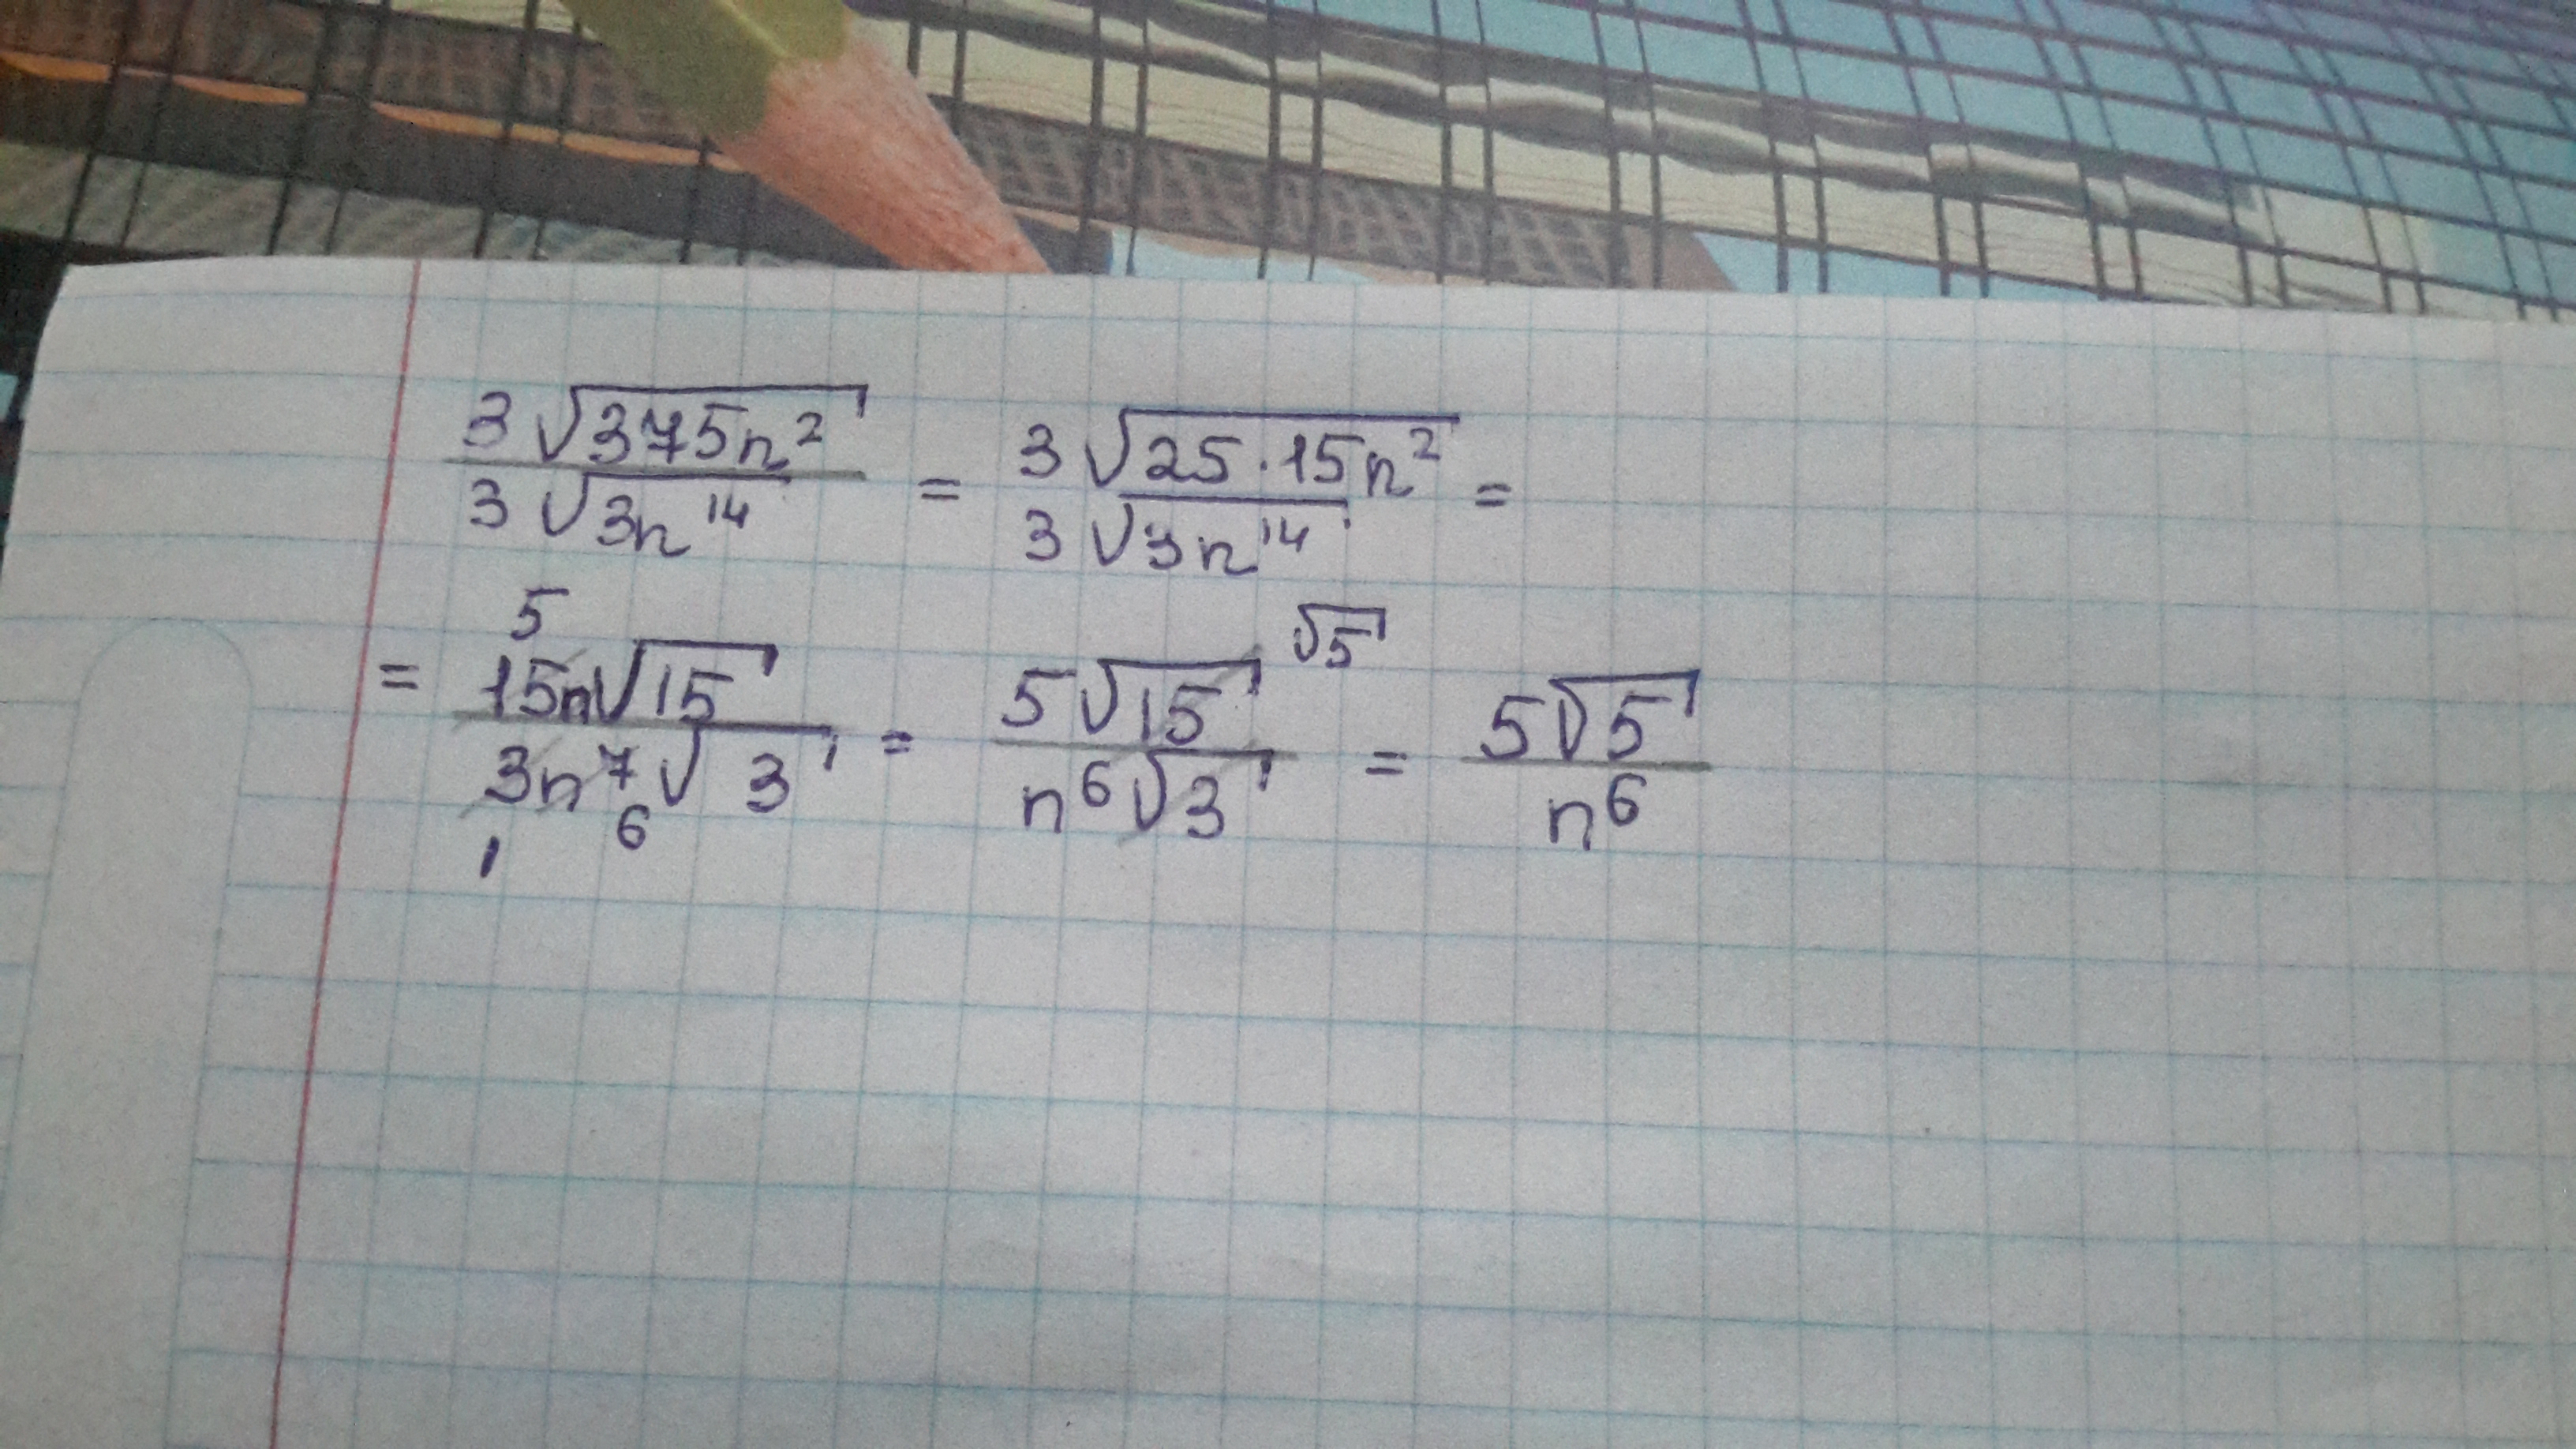 3√375n² / 3√3n¹⁴ = 3√25·15n² / 3√3n¹⁴ =
= 15n√15 / 3n⁷√3 = 5√15 / n⁶√3 = 5√5 / n⁶
5 1 6 √5